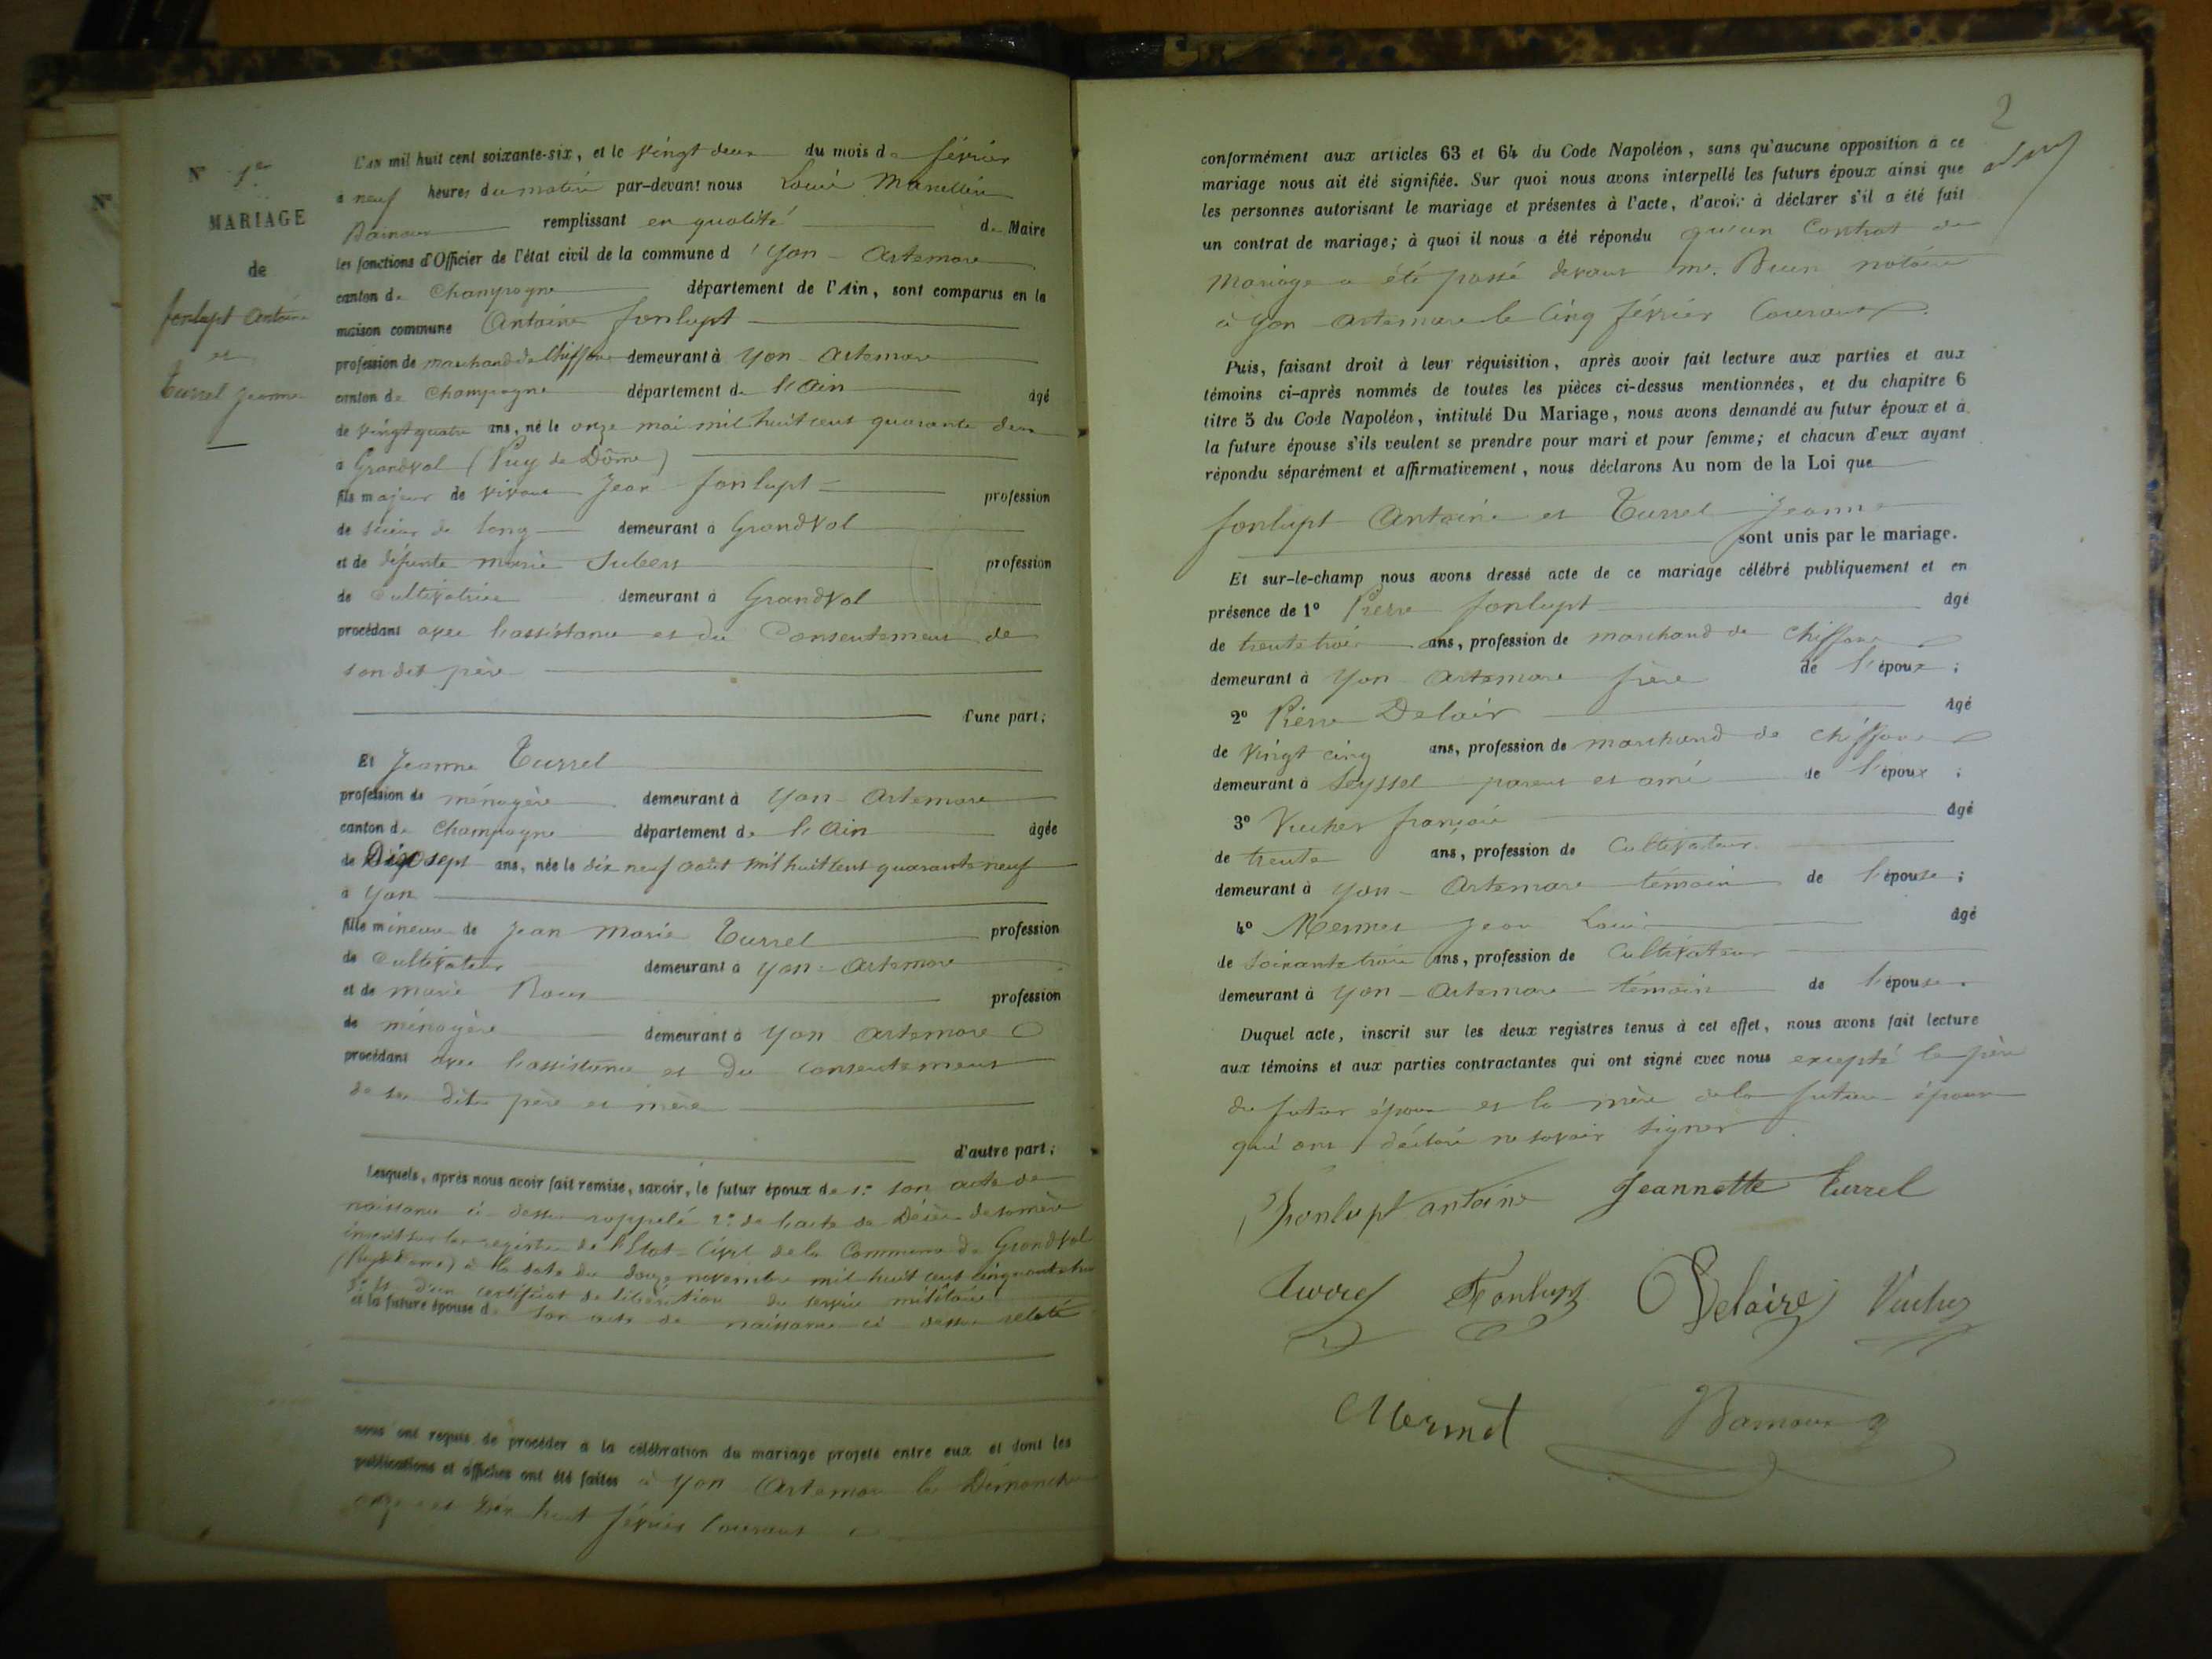 N° 1er
MARIAGE
de
fonlupt Antoine
et
Turrel Jeanne
N°
L'AN mil huit cent soixante-six, et le vingt deux du mois de février
à neuf heures du matin par-devant nous Louis Marcellin
remplissant en qualité de Maire
les fonctions d'Officier de l'état civil de la commune d'Yon - Artemare
canton de Champagne département de l'Ain, sont comparus en la
maison commune Antoine fonlupt
profession de marchand de Chiffons demeurant à Yon - Artemare
canton de Champagne département de l'Ain âgé
de vingt quatre ans, né le onze mai mil huit cent quarante deux
à Grandval (Puy de Dôme)
fils majeur de vivant Jean fonlupt profession
de scieur de long demeurant à Grandval
et de défunte marie profession
de Cultivatrice demeurant à Grandval
procédant avec l'assistance et du Consentement de
son dit père
d'une part;
Et Jeanne Turrel
profession de ménagère demeurant à Yon - Artemare
canton de Champagne département de l'Ain âgée
de Dix sept ans, née le dix neuf août mil huit cent quarante neuf
à Yon
fille mineure de Jean Marie Turrel profession
de Cultivateur demeurant à Yon - Artemare
et de marie Roux profession
de ménagère demeurant à Yon Artemare
procédant avec l'assistance et du consentement
de ses dits père et mère
d'autre part;
Lesquels, après nous avoir fait remise, savoir, le futur époux de 1° son acte de
naissance ci-dessus rappelé 2° de l'acte de Décès de sa mère
inscrit sur les registres de l'Etat-Civil de la Commune de Grandval
(Puy de Dôme) à la date du douze novembre mil huit cent cinquante
3° Et d'un certificat de libération du service militaire
et la future épouse de son acte de naissance ci dessus relaté
nous ont requis de procéder à la célébration du mariage projeté entre eux et dont les
publications et affiches ont été faites à Yon Artemare les Dimanches
onze et dix huit février courant
2
conformément aux articles 63 et 64 du Code Napoléon, sans qu'aucune opposition à ce
mariage nous ait été signifiée. Sur quoi nous avons interpellé les futurs époux ainsi que
les personnes autorisant le mariage et présentes à l'acte, d'avoir à déclarer s'il a été fait
un contrat de mariage; à quoi il nous a été répondu qu'un Contrat de
mariage a été passé devant me. Brun notaire
à Yon - Artemare le Cinq février Courant.
Puis, faisant droit à leur réquisition, après avoir fait lecture aux parties et aux
témoins ci-après nommés de toutes les pièces ci-dessus mentionnées, et du chapitre 6
titre 5 du Code Napoléon, intitulé Du Mariage, nous avons demandé au futur époux et à
la future épouse s'ils veulent se prendre pour mari et pour femme; et chacun d'eux ayant
répondu séparément et affirmativement, nous déclarons Au nom de la Loi que
fonlupt Antoine et Turrel Jeanne
sont unis par le mariage.
Et sur-le-champ nous avons dressé acte de ce mariage célébré publiquement et en
présence de 1° Pierre fonlupt âgé
de trente trois ans, profession de marchand de chiffons
demeurant à Yon Artemare frère de l'époux;
2° Pierre Delair âgé
de vingt cinq ans, profession de marchand de chiffons
demeurant à Seyssel parent et ami de l'époux;
3° Vuchez françois âgé
de trente ans, profession de Cultivateur
demeurant à Yon - Artemare témoin de l'épouse;
4° Mermet Jean Louis âgé
de soixante trois ans, profession de Cultivateur
demeurant à Yon - Artemare témoin de l'épouse.
Duquel acte, inscrit sur les deux registres tenus à cet effet, nous avons fait lecture
aux témoins et aux parties contractantes qui ont signé avec nous excepté le père
du futur époux et la mère de la future épouse
qui ont déclaré ne savoir signer.
fonlupt antoine Jeannette turrel
turrel Fonlupt Delaire Vuchez
Mermet